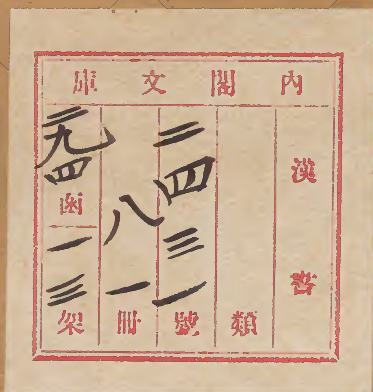 內閣文庫
漢書
類
二四三一號
八一冊
二九四函
一三架